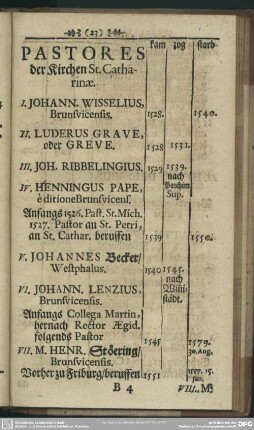 (23)
PASTORES kam zog starb
der Kirchen St. Catha-
rinæ.
I. JOHANN. WISSELIUS,
Brunsvicensis. 1528. 1540.
II. LUDERUS GRAVE,
oder GREVE. 1528 1531.
III. JOH. RIBBELINGIUS. 1529 1539.
nach
Parchim
Sup.
IV. HENNINGUS PAPE,
è ditione Brunsvicens.
Anfangs 1526. Past. St. Mich.
1527. Pastor an St. Petri,
an St. Cathar. beruffen 1539 1550.
V. JOHANNES Becker/
Westphalus. 1540 1545.
nach
städt.
VI. JOHANN. LENZIUS,
Brunsvicensis.
Anfangs Collega Martin,
hernach Rector Ægid.
folgends Pastor 1545 1579.
30. Aug.
VII. M. HENR. Stöering/
Brunsvicensis. 1557. 15.
Vorher zu Friburg/beruffen 1551
B 4 VIII. M.